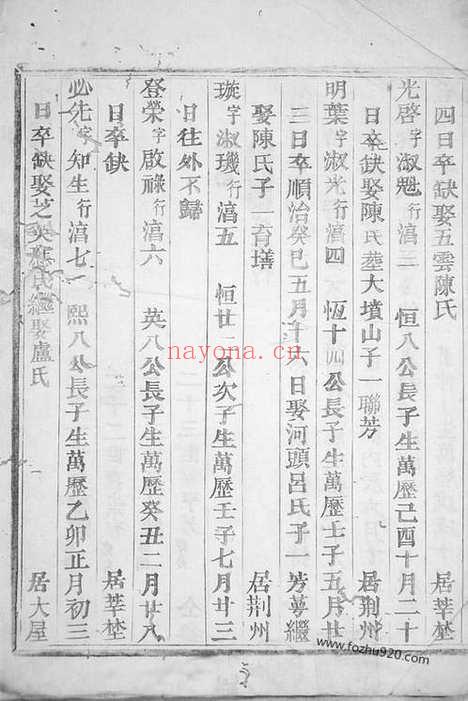 四日卒缺娶五雲陳氏 居莘塍
光啓字淑魁行滈三 恒八公長子生萬歷己酉十月二十
日卒缺娶陳氏葬大墳山子一聯芳 居荆州
明葉字淑光行滈四 恆十四公長子生萬歷壬子五月廿
三日卒順治癸巳五月十六日娶河頭呂氏子一芳夢繼
娶陳氏子一育墡 居荆州
璇字淑璣行滈五 恒廿一公次子生萬歷壬子七月廿三
日往外不歸
登榮字啟祿行滈六 英八公長子生萬歷癸丑二月廿八
日卒缺 居莘塍
必先字知生行滈七 熙八公長子生萬歷乙卯正月初三
日卒缺娶芝英應氏繼娶盧氏 居大屋
nayona.cn
www.fozhu920.com